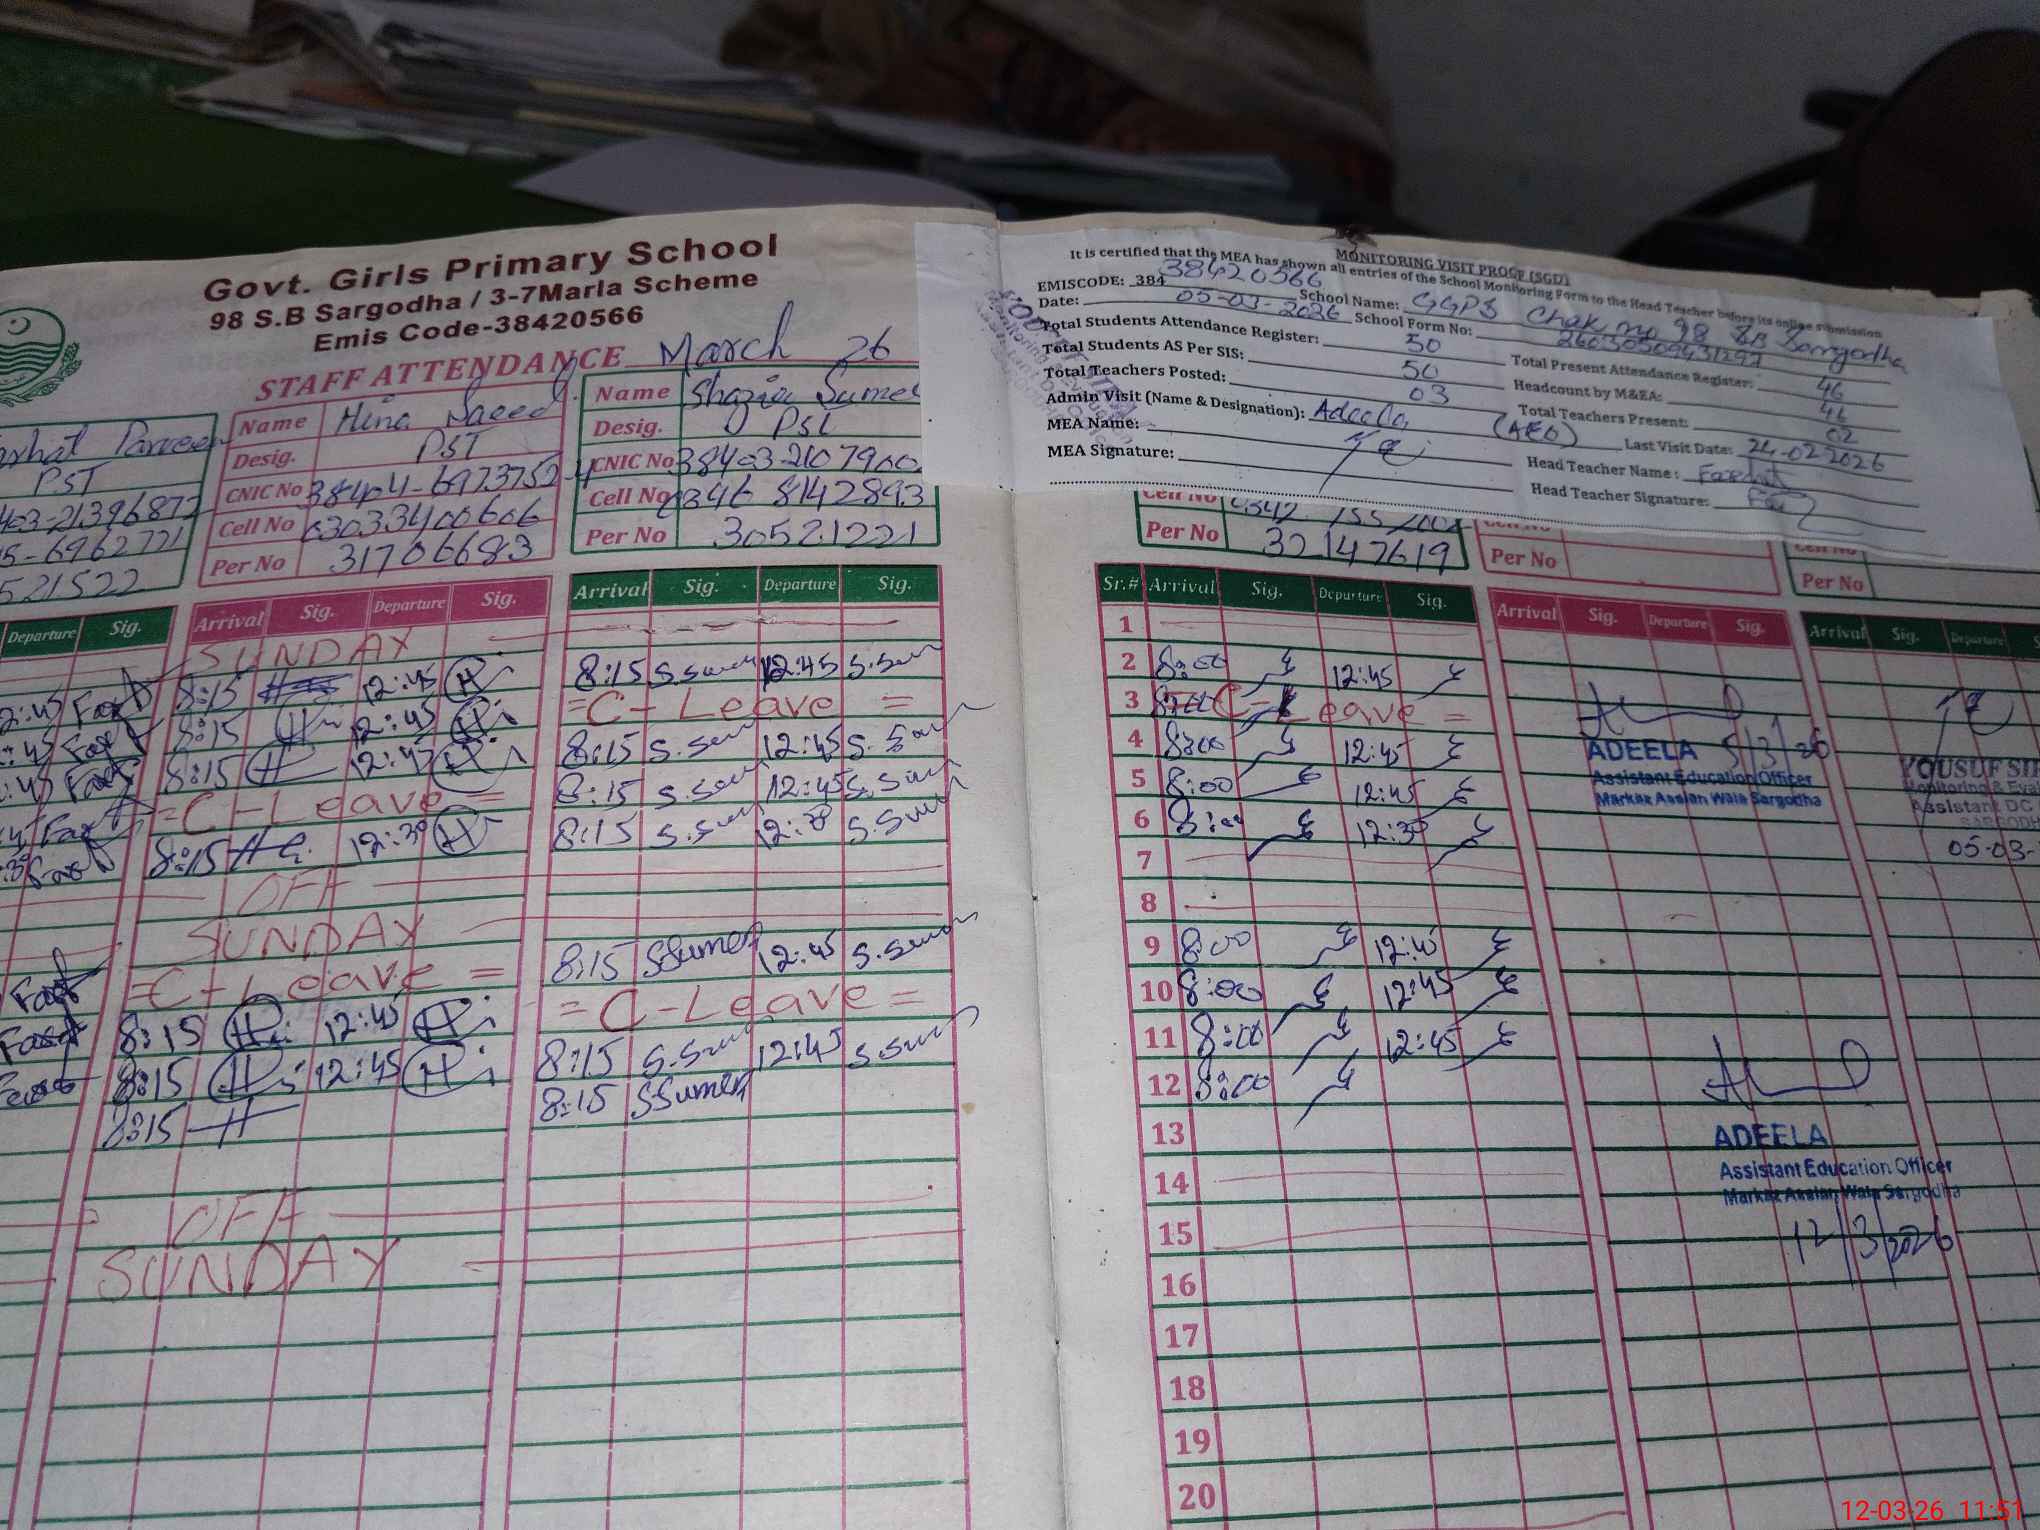 Govt. Girls Primary School
98 S.B Sargodha / 3-7Marla Scheme
Emis Code-38420566
STAFF ATTENDANCE March 26
PST
521522
Departure Sig.
Name Hina Saeed
Desig. PST
CNIC No 38404-6973752-4
Cell No 03033400606
Per No 31706683
Arrival Sig. Departure Sig.
SUNDAY
8:15 12:45
8:15 12:45
8:15 12:45
=C-Leave=
8:15 12:30
OFF
SUNDAY
=C-Leave=
8:15 12:45
8:15 12:45
8:15
OFF
SUNDAY
Name Shazia
Desig. PST
CNIC No
Cell No 0346 8142893
Per No 30521221
Arrival Sig. Departure Sig.
8:15 12:45
=C-Leave=
8:15 12:45
8:15 12:45
8:15 12:30
8:15 SSumer 12:45
=C-Leave=
8:15 12:45
8:15 SSumer
MONITORING VISIT PROOF (SGD)
It is certified that the MEA has shown all entries of the School Monitoring Form to the Head Teacher before its online submission
EMISCODE: 384 38420566 School Name: GGPS Chak no 98 SB Sargodha
Date: 05-03-2026 School Form No:
Total Students Attendance Register: 50 Total Present Attendance Register: 46
Total Students AS Per SIS: 50 Headcount by M&EA: 46
Total Teachers Posted: 03 Total Teachers Present: 02
Admin Visit (Name & Designation): Adeela (AEO) Last Visit Date: 24-02-2026
MEA Name: Head Teacher Name:
MEA Signature: Head Teacher Signature:
Cell No
Per No 32147619
Per No
Cell No
Per No
Sr.# Arrival Sig. Departure Sig.
1
2 8:00 12:45
3 C-Leave =
4 8:00 12:45
5 8:00 12:45
6 8:00 12:30
7
8
9 8:00 12:45
10 8:00 12:45
11 8:00 12:45
12 8:00
13
14
15
16
17
18
19
20
Arrival Sig. Departure Sig.
ADEELA 5/3/26
Assistant Education Officer
Markaz Asslan Wala Sargodha
ADEELA
Assistant Education Officer
Markaz Asslan Wala Sargodha
12/3/2026
Arrival Sig. Departure
YOUSUF
Monitoring & Eva
Assistant DC
SARGODH
05-03-
12-03-26 11:51